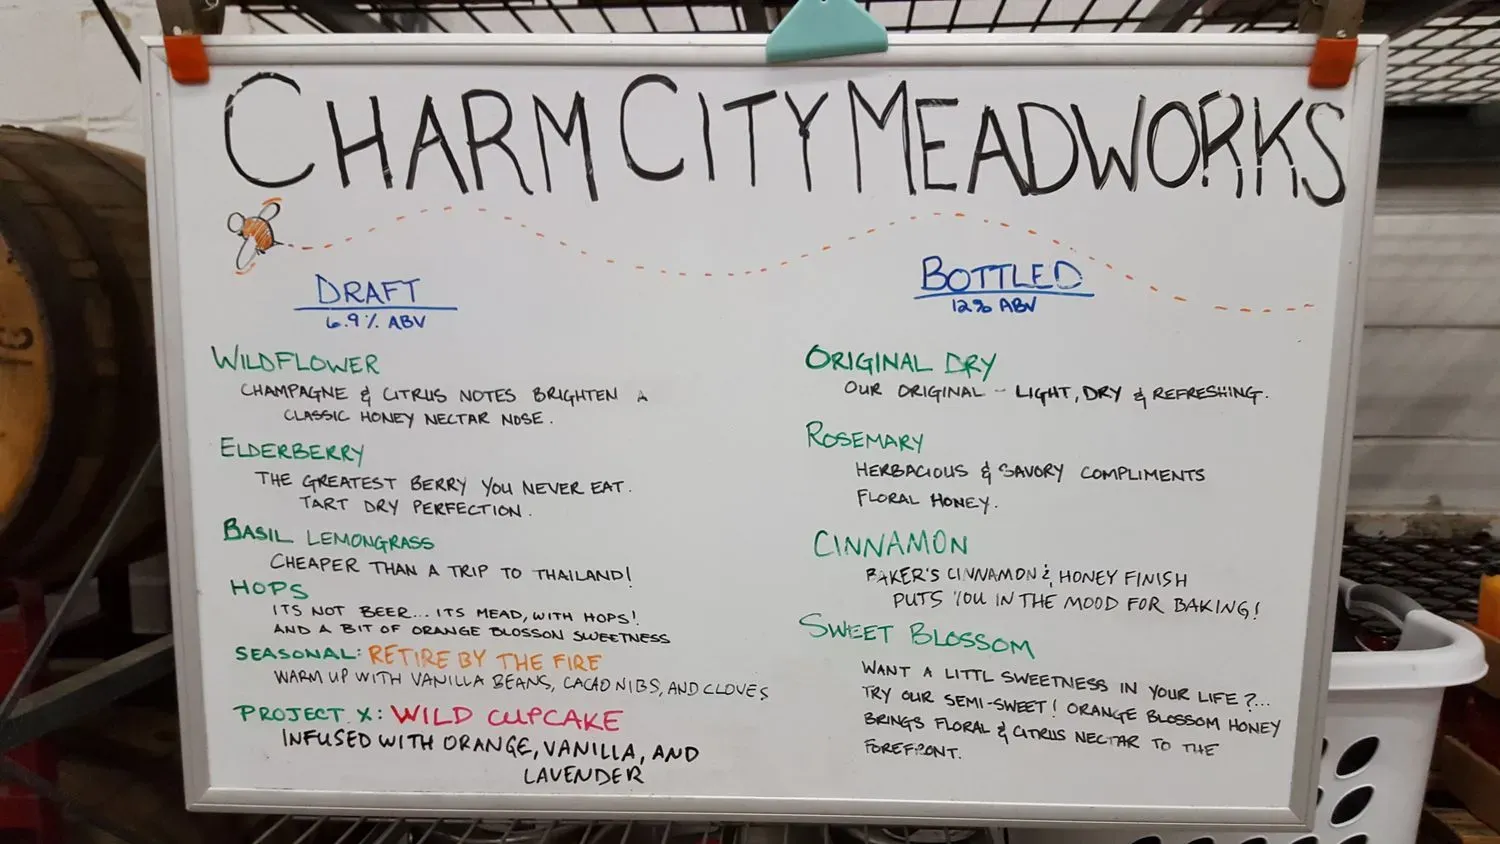 CHARM CITY MEADWORKS
DRAFT
6.9% ABV
WILDFLOWER
CHAMPAGNE & CITRUS NOTES BRIGHTEN A
CLASSIC HONEY NECTAR NOSE.
ELDERBERRY
THE GREATEST BERRY YOU NEVER EAT.
TART DRY PERFECTION.
BASIL LEMONGRASS
CHEAPER THAN A TRIP TO THAILAND!
HOPS
ITS NOT BEER... ITS MEAD, WITH HOPS!
AND A BIT OF ORANGE BLOSSON SWEETNESS
SEASONAL: RETIRE BY THE FIRE
WARM UP WITH VANILLA BEANS, CACAO NIBS, AND CLOVES
PROJECT X: WILD CUPCAKE
INFUSED WITH ORANGE, VANILLA, AND
LAVENDER
BOTTLED
12% ABV
ORIGINAL DRY
OUR ORIGINAL - LIGHT, DRY & REFRESHING.
ROSEMARY
HERBACIOUS & SAVORY COMPLIMENTS
FLORAL HONEY.
CINNAMON
BAKER'S CINNAMON & HONEY FINISH
PUTS YOU IN THE MOOD FOR BAKING!
SWEET BLOSSOM
WANT A LITTL SWEETNESS IN YOUR LIFE?...
TRY OUR SEMI-SWEET! ORANGE BLOSSOM HONEY
BRINGS FLORAL & CITRUS NECTAR TO THE
FOREFRONT.